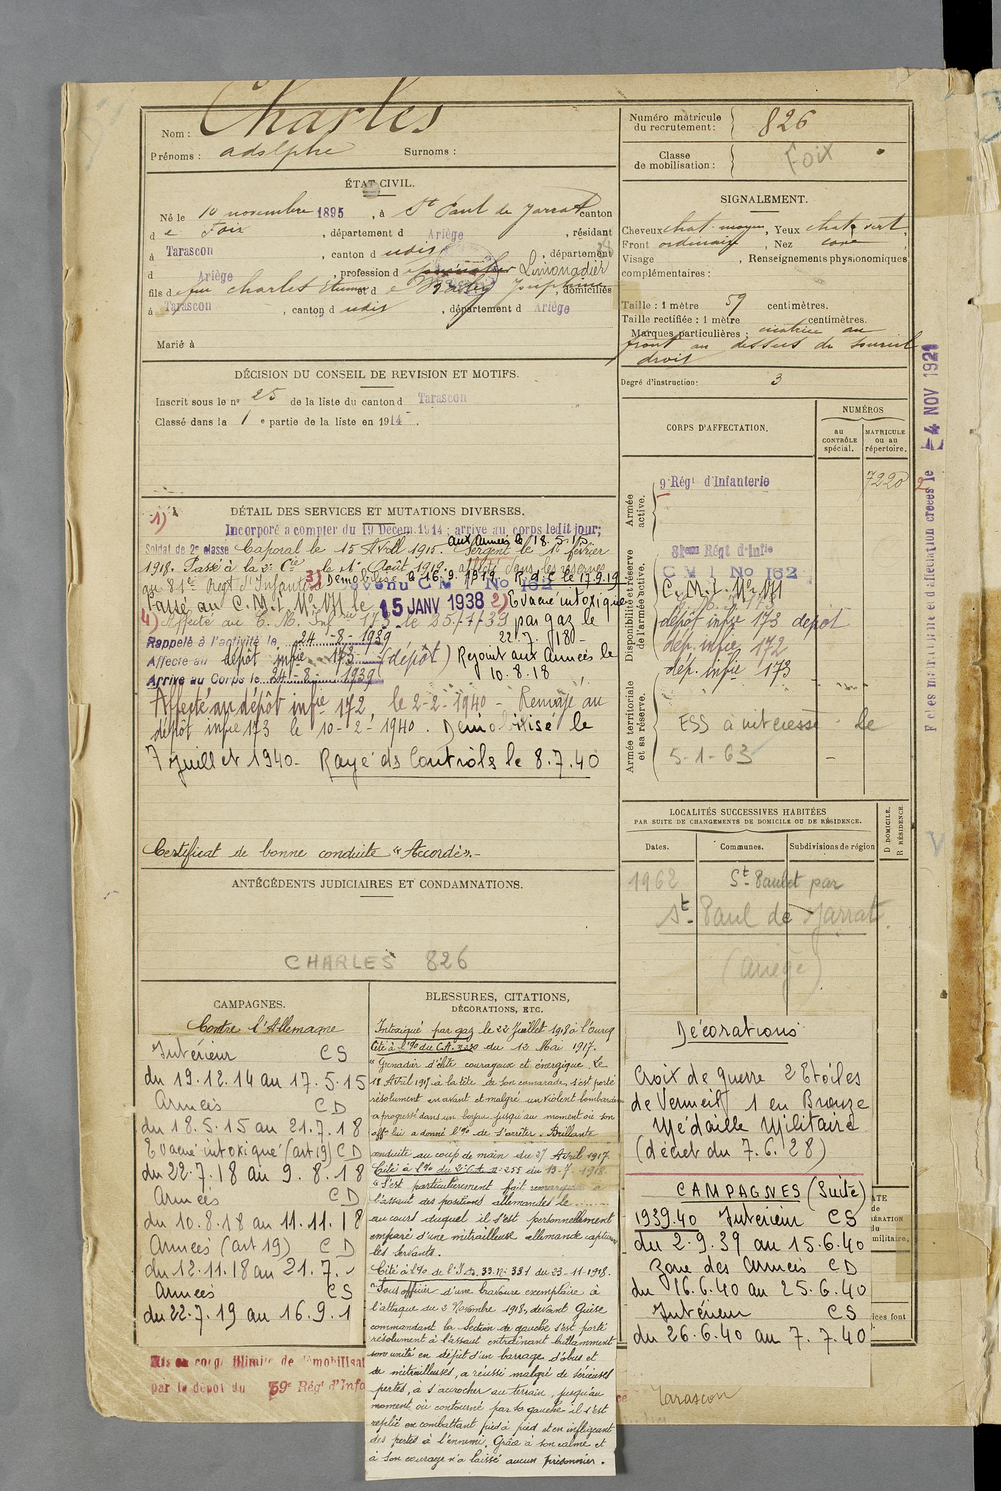 Nom : Charles
Prénoms : adolphe Surnoms :
Numéro matricule
du recrutement : 826
Classe
de mobilisation :
Foix
ÉTAT CIVIL.
Né le 10 novembre 1895, à St Paul de Jarrat canton
d e Foix, département d Ariège, résidant
à Tarascon, canton d udis, département
d Ariège, profession d Limonadier
fils d e feu charles Etienne et d e , domiciliés
à Tarascon, canton d udis, département d Ariège
Marié à
SIGNALEMENT.
Cheveux chat moyen, Yeux chat vert,
Front ordinaire, Nez cave
Visage , Renseignements physionomiques
complémentaires :
Taille : 1 mètre 59 centimètres.
Taille rectifiée : 1 mètre centimètres.
Marques particulières : cicatrice au
front au dessus du sourcil
droit
Degré d'instruction : 3
DÉCISION DU CONSEIL DE REVISION ET MOTIFS.
Inscrit sous le nº 25 de la liste du canton d Tarascon
Classé dans la 1 e partie de la liste en 1914.
CORPS D'AFFECTATION.
NUMÉROS
au
CONTRÔLE
spécial.
MATRICULE
ou au
répertoire.
Armée
active.
9e Régt d'Infanterie
7220
Disponibilité et réserve
de l'armée active.
81eme Régt d'Infie
C M I No 162
dépôt infie 173 dépôt
dép. infie 172
dép. infie 173
Armée territoriale
et sa réserve.
ESS à intéressé le
5-1-63
Fiches matricule et d'affectation créées le 4 NOV 1921
DÉTAIL DES SERVICES ET MUTATIONS DIVERSES.
1)
Incorporé à compter du 19 Décem. 1914 ; arrivé au corps ledit jour;
aux Armées le 18.5.15
Soldat de 2e classe Caporal le 15 Avril 1915. Sergent le 1er février
1918. Passé à la Cie le 1er Août 1919.
au 81e Regt d'Infanterie 3) Démobilisé le 16.9.1919 R.d.C le 17.9.19
Passé au C.M.I. le 15 JANV 1938 2) Evacué intoxiqué
4) Affecté au C.M. Infrie 173 le 25/7/39 par gaz le
Rappelé à l'activité le 24-8-1939 22.7.18
Affecté au dépôt infie 173 (dépôt) Rejoint aux armées le
Arrivé au Corps le 24-8-1939 10.8.18
Affecté au dépôt infie 172, le 2-2-1940 - Remagé au
dépôt infie 173 le 10-2-1940. Démobilisé le
7 Juillet 1940- Rayé ds Contrôls le 8.7.40
Certificat de bonne conduite "Accordé".-
LOCALITÉS SUCCESSIVES HABITÉES
PAR SUITE DE CHANGEMENTS DE DOMICILE OU DE RÉSIDENCE.
Dates. Communes. Subdivisions de région
D DOMICILE.
R RÉSIDENCE.
1962 St Paulet par
St Paul de Jarrat
(Ariège)
ANTÉCÉDENTS JUDICIAIRES ET CONDAMNATIONS.
CHARLES 826
CAMPAGNES.
Contre l'Allemagne
Intérieur CS
du 19.12.14 au 17.5.15
Armées CD
du 18.5.15 au 21.7.18
Evacué intoxiqué (art 19) CD
du 22.7.18 au 9.8.18
Armées CD
du 10.8.18 au 11.11.18
Armées (art 19) CD
du 12.11.18 au 21.7.
Armées CS
du 22.7.19 au 16.9.1
Mis en congé illimité de démobilisat
par le dépôt du 59e Régt d'Infa
BLESSURES, CITATIONS,
DÉCORATIONS, ETC.
Intoxiqué par gaz le 22 Juillet 1918 à l'Ourcq
Cité à l'% du C.A. du 12 Mai 1917.
"Grenadier d'élite courageux et énergique. Le
18 Avril 1917 à la tête de son camarade, s'est porté
résolument en avant et malgré un violent bombardem
a progressé dans un boyau jusqu'au moment où son
offr lui a donné l'% de s'arrêter. Brillante
conduite au coup de main du 27 Avril 1917.
Cité à l'% du 2e C.A. nº 255 du 13-7-1918.
"S'est particulièrement fait remarquer à
l'assaut des positions allemandes le
au cours duquel il s'est personnellement
emparé d'une mitrailleuse allemande capturé
les servants.
Cité à l'% de l'I.D. 33 Nº 381 du 23-11-1918.
"Sous officier d'une bravoure exemplaire à
l'attaque du 2 Novembre 1918, devant Guise
commandant la section de gauche s'est porté
résolument à l'assaut entraînant brillamment
son unité en dépit d'un barrage d'obus et
de mitrailleuses, a réussi malgré de sérieuses
pertes, à s'accrocher au terrain, jusqu'au
moment où contourné par la gauche il s'est
replié en combattant pied à pied et en infligeant
des pertes à l'ennemi. Grâce à son calme et
à son courage n'a laissé aucun prisonnier.
Décorations
Croix de guerre 2 Etoiles
de Vermeil 1 en Bronze
Médaille Militaire
(décret du 7.6.28)
CAMPAGNES (Suite)
1939.40 Intérieur CS
du 2.9.39 au 15.6.40
Zone des Armées CD
du 16.6.40 au 25.6.40
Intérieur CS
du 26.6.40 au 7.7.40
Tarascon